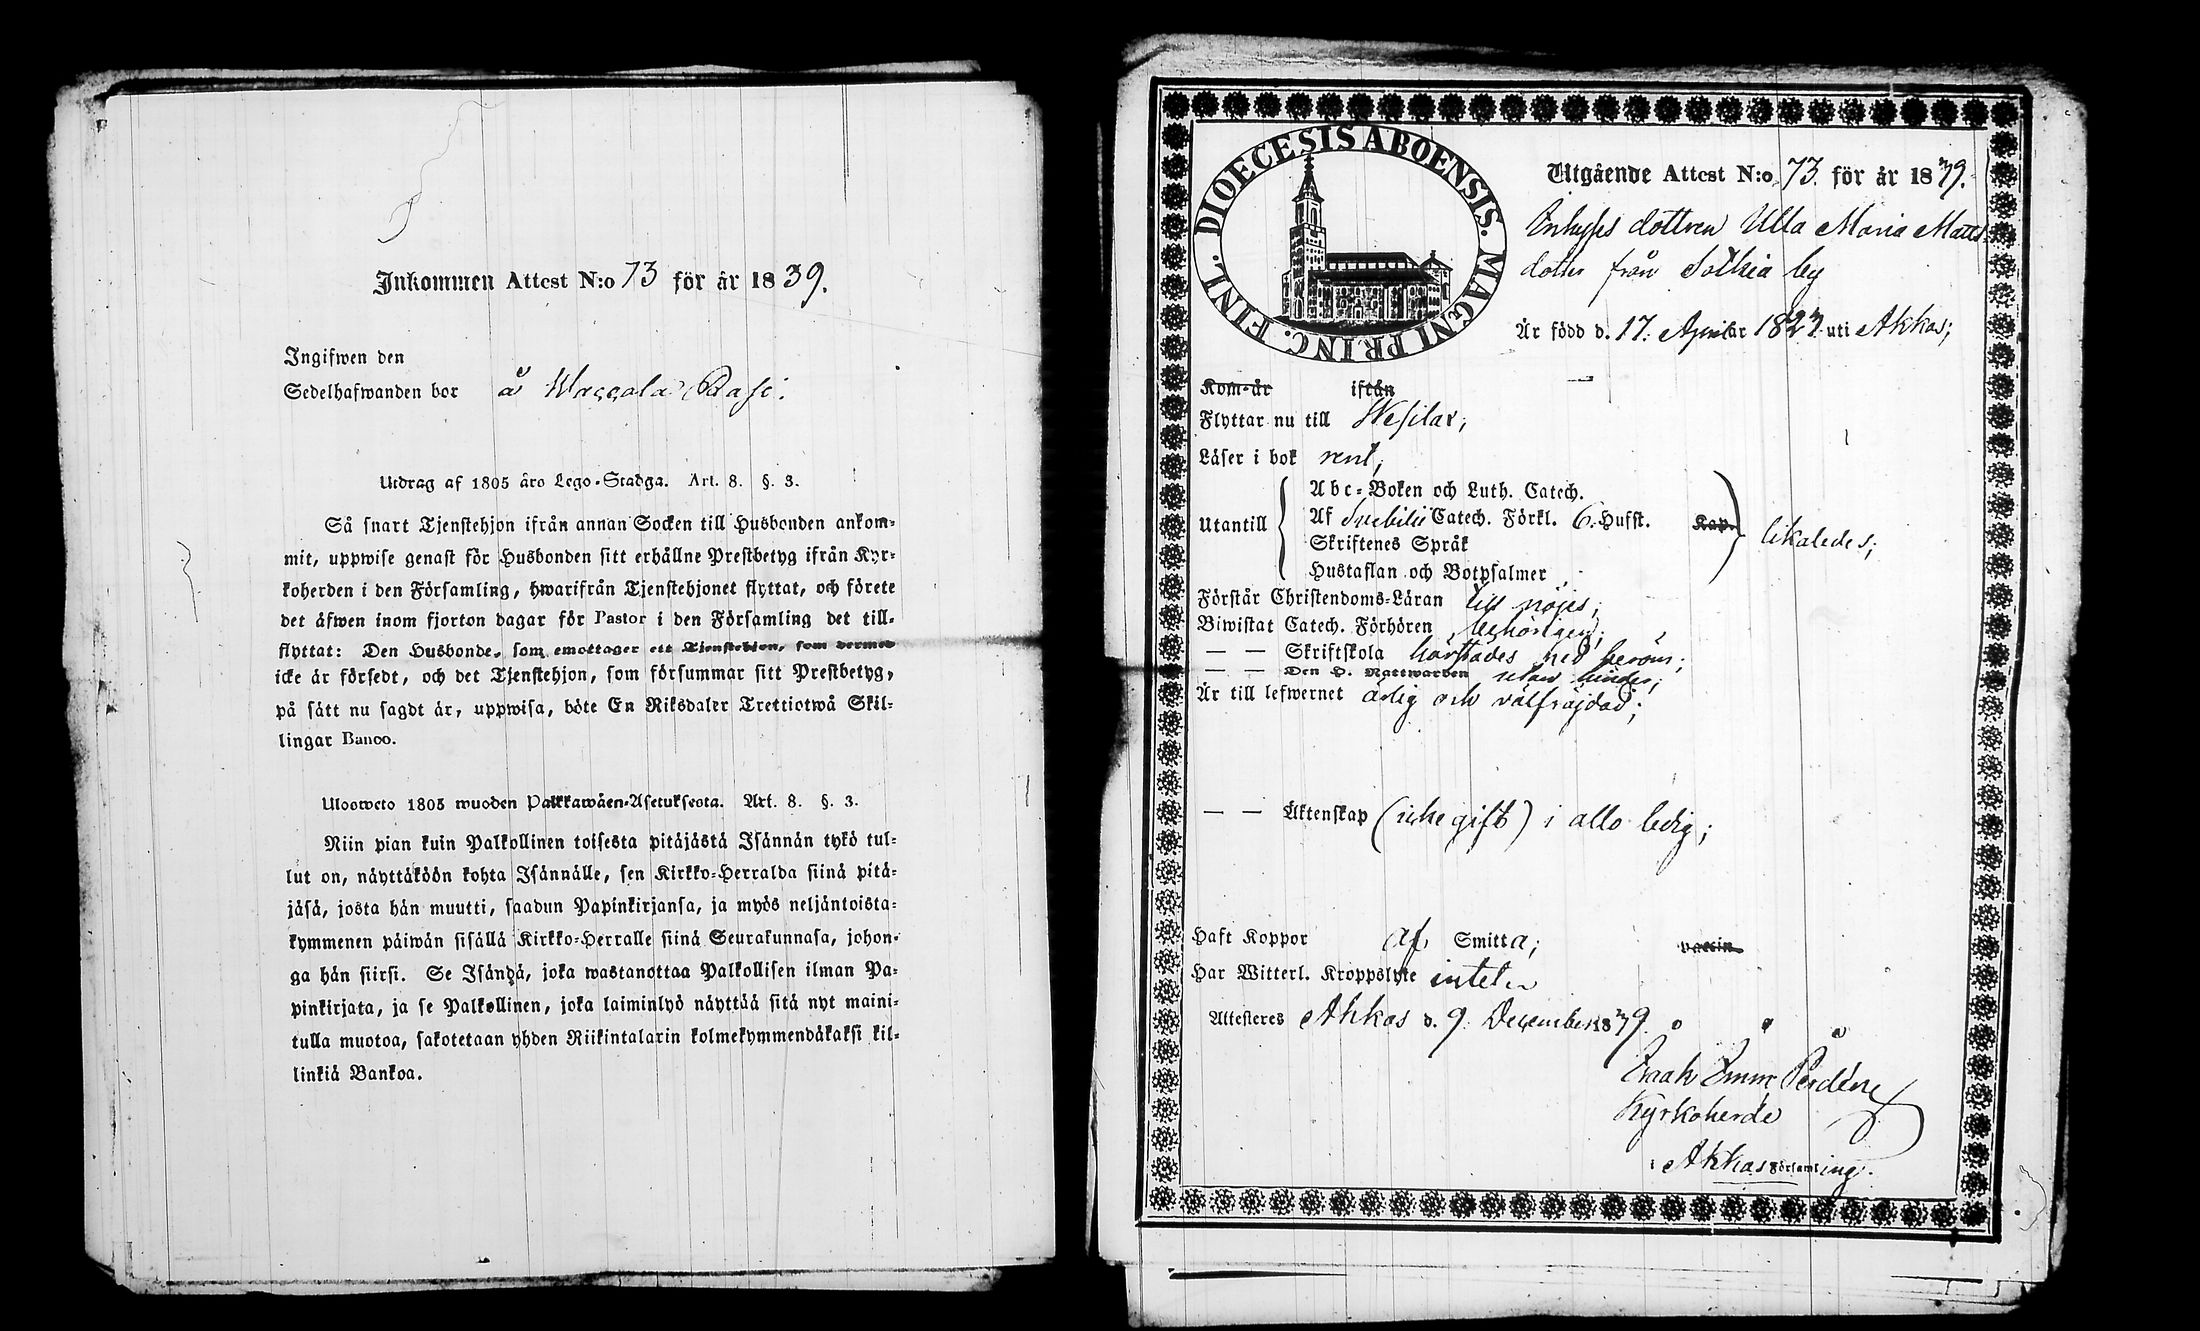 Inkommen Attest N:o 73 för år 1839.
Ingifwen den
Sedelhafwanden bor å Waggala Pasi.
Utdrag af 1805 års Lego-Stadga. Art. 8. §. 3.
Så snart Tjenstehjon ifrån annan Socken till Husbonden ankom-
mit, uppwise genast för Husbonden sitt erhållne Prestbetyg ifrån Kyr-
koherden i den Församling, hwarifrån Tjenstehjonet flyttat, och förete
det äfwen inom fjorton dagar för Pastor i den Församling det till-
flyttat: Den Husbonde, som emottager ett Tjenstehjon, som dermed
icke är försedt, och det Tjenstehjon, som försummar sitt Prestbetyg,
på sätt nu sagdt är, uppwisa, böte En Riksdaler Trettiotwå Skil-
lingar Banco.
Ulosweto 1805 wuoden Palkkawäen-Asetuksesta. Art. 8. §. 3.
Niin pian kuin Palkollinen toisesta pitäjästä Isännän tykö tul-
lut on, näyttäköön kohta Isännälle, sen Kirkko-Herralda siinä pitä-
jäsä, josta hän muutti, saadun Papinkirjansa, ja myös neljäntoista-
kymmenen päiwän sisällä Kirkko-Herralle siinä Seurakunnasa, johon-
ga hän siirsi. Se Isändä, joka wastanottaa Palkollisen ilman Pa-
pinkirjata, ja se Palkollinen, joka laiminlyö näyttää sitä nyt maini-
tulla muotoa, sakotetaan yhden Riikintalarin kolmekymmendäkaksi kil-
linkiä Bankoa.
DIOECESIS ABOENSIS. MAGNI PRINC. FINL.
Utgående Attest N:o 73. för år 1839.
Inhyses dottren Ulla Maria Matts
dotter från Sotkia by
Är född d. 17. April år 1823 uti Akkas;
Kom år ifrån
Flyttar nu till Wesilax;
Läser i bok rent;
Utantill
Abc-Boken och Luth. Catech.
Af Svebilii Catech. Förkl. 6. Hufst. Kap.
Skriftenes Språk
Hustaflan och Botpsalmer
likaledes;
Förstår Christendoms-Läran till nöjes;
Biwistat Catech. Förhören behörigen;
— — Skriftskola med beröm;
— — Den H. Nattwarden utan hinder;
Är till lefwernet ärlig och välfräjdad;
— — Äktenskap (icke gift) i allo ledig;
Haft Koppor af Smitta; vaccin.
Har Witterl. Kroppslyte intet
Attesteres Akkas d. 9. December 1839.
Isaak Imm. Perdén
Kyrkoherde
i Akkas Församling.